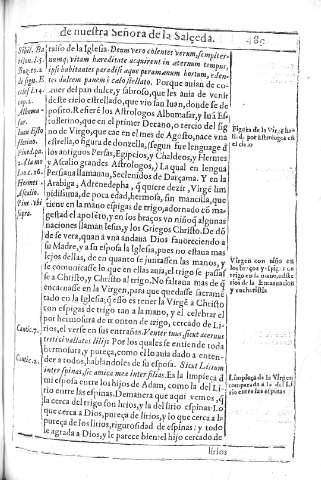 de nuestra Señora de la Salceda.
raiso de la Iglesia. Deum vero colentes verum, sempiter-
numq; vitam hæreditate acquirent in æternum tempus,
ipsi habitantes paradisi æque peramænum hortum, eden-
tes dulcem panem è cælo stellato. Porque auian de co-
der del pan dulce, y sabroso, que les auia de venir
deste cielo estrellado, que vio san Iuan, donde se de
posito. Refiere los Astrologos Albumasar, y Iuā Es-
toflerino, que en el primer Decano, o tercio del sig
no de Virgo, que cae en el mes de Agosto, nace vna
estrella, o figura de donzella, segun fue lenguage de
los antiguos Persas, Egipcios, y Chaldeos, y Hermes
y Ascalio grandes Astrologos,) La qual en lengua
Persiana llamauan, Seclenidos de Darzama. Y en la
Arabiga, Adrenedepha, q̄ quiere dezir, Virgē lim
pidissima, de poca edad, hermosa, sin mancilla, que
tiene en la mano espigas de trigo, adornado cō ma-
gestad el aposēto, y en los braços vn niño q̄ algunas
naciones llaman Iesus, y los Griegos Christo. De dō
de se vera, quan à vna andaua Dios fauoreciendo a
su Madre, y a su esposa la Iglesia, pues no estaua mas
lejos dellas, de en quanto se juntassen las manos, y
se comunicasse lo que en ellas auia, el trigo se passas
se a Christo, y Christo al trigo. No faltaua mas de q̄
encarnasse en la Virgen, para que quedasse sacramē
tado en la Iglesia; q̄ esso es tener la Virgē a Christo
con espigas de trigo tan a la mano, y el celebrar el
por hermosura de it monton de trigo, cercado de Li-
rios, el verse en sus entrañas. Venter tuus sicut aceruus
tritici vallatus lilijs. Por los quales se entiende toda
hermosura, y pureça, como el lo auia dado a enten-
der a todos, hablandoles de su esposa. Sicut Lilium
inter spinas, sic amica mea inter filias. Es la limpieça d̄
mi esposa entre los hijos de Adam, como la del Li-
rio entre las espinas. Demanera que aqui vemos, q̄
la cerca del trigo son lirios, y la del lirio espinas: Lo
que cerca a Dios, pureça de lirios, y lo que cerca a la
pureça de los lirios, rigurosidad de espinas: y todo
le agrada a Dios, y le parece bien: el hijo cercado de
lirios
Cantic. 7.
Cantic. 2.
Virgen con niño en
los braços y espigas de
trigo en la mano, miste
rios de la Encarnacion
y eucharistia
Limpieça de la Virgen
comparada a la del Li
rio entre las espinas